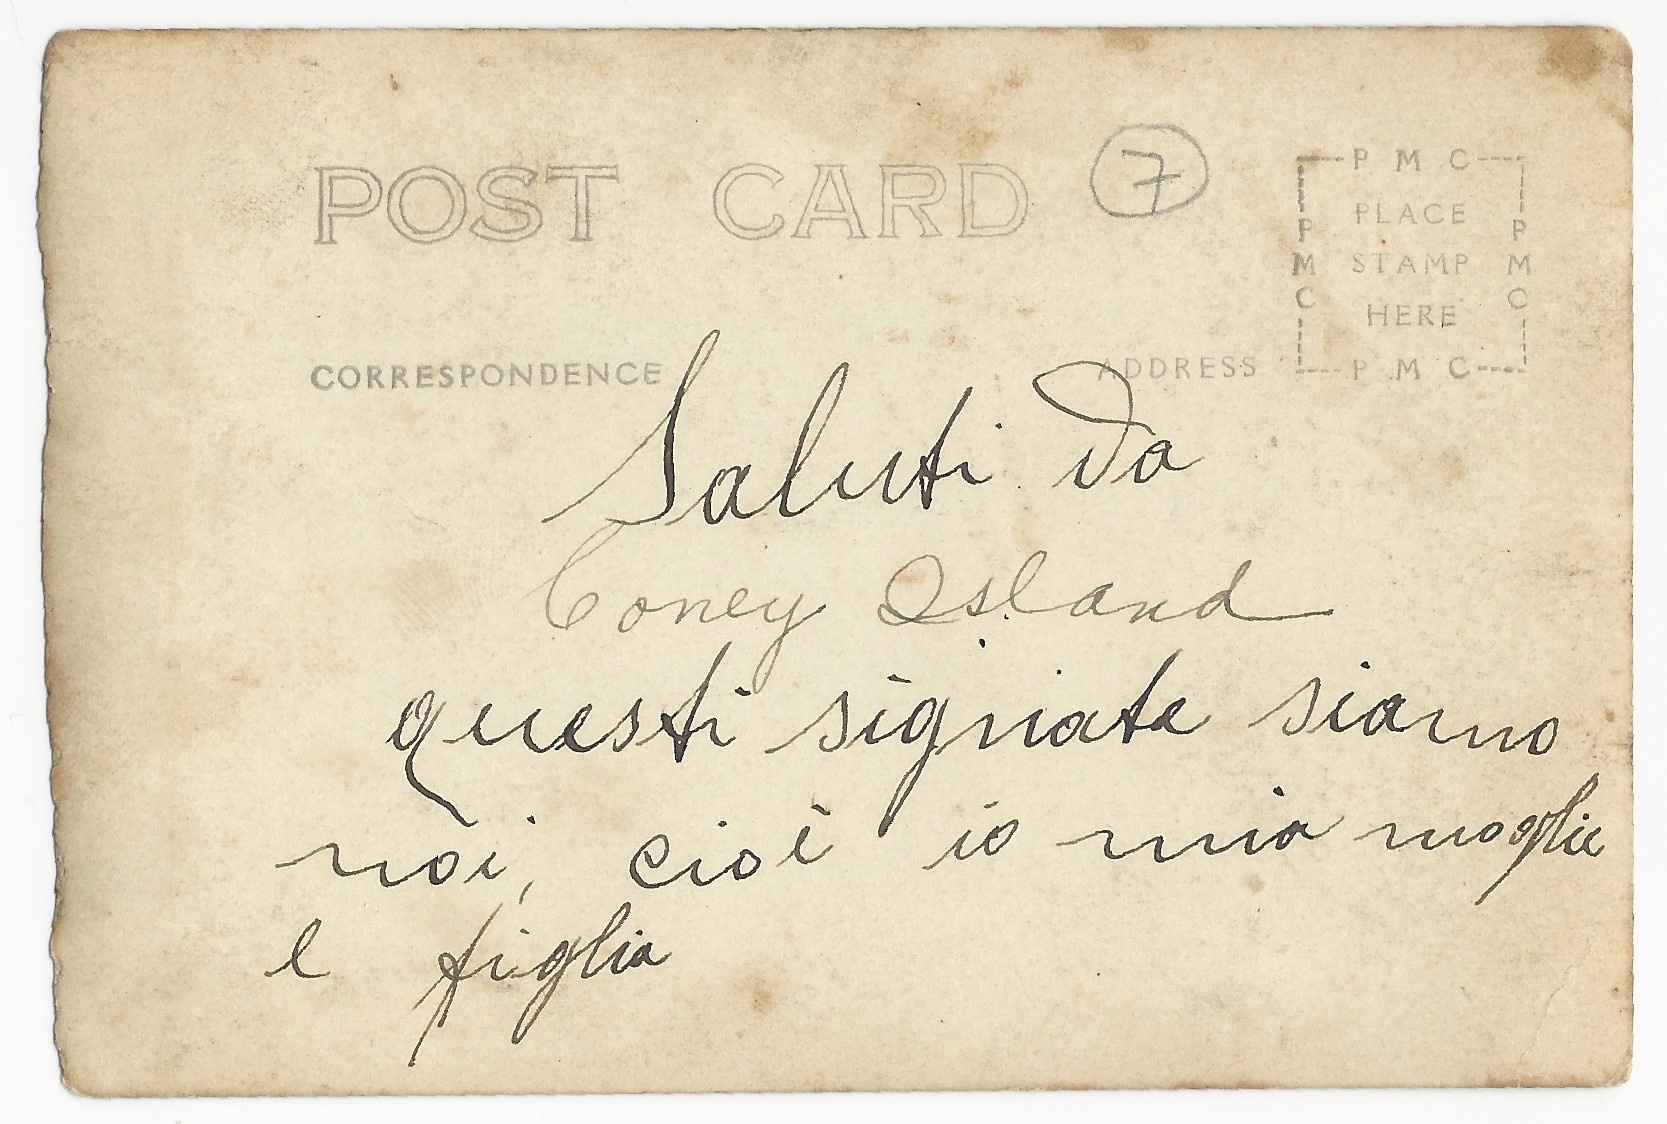 POST CARD 7
P M C
PLACE
STAMP
HERE
P M C
P M C
P M C
CORRESPONDENCE
ADDRESS
Saluti da
Coney Island
questi signiate siamo
noi, cioè io mia moglie
e figlia